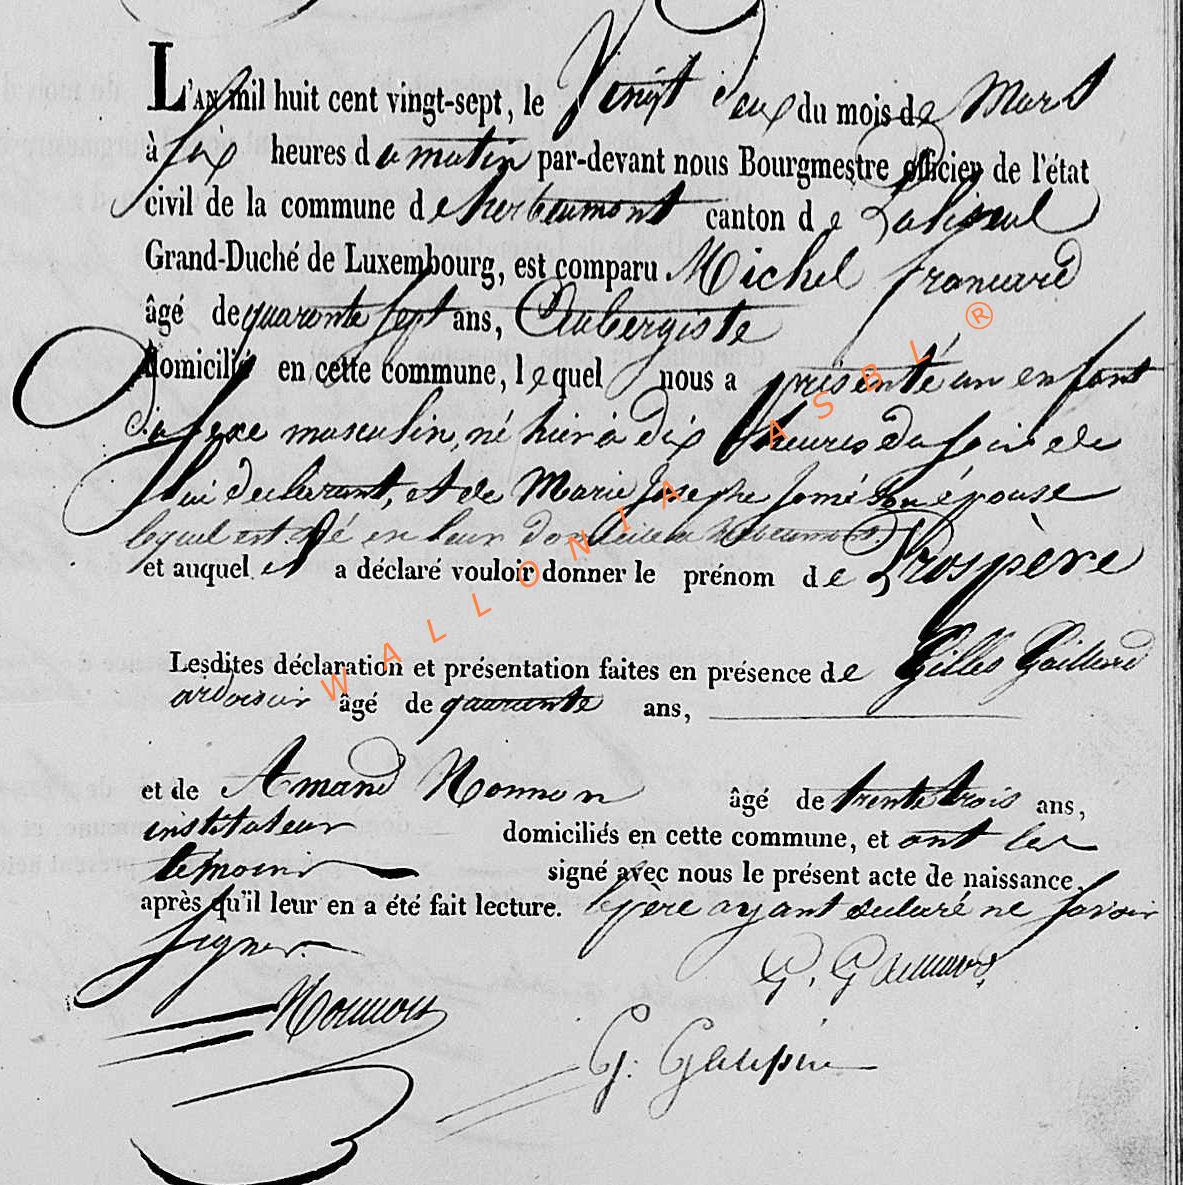 L'AN mil huit cent vingt-sept, le Vingt deux du mois de Mars
à six heures du matin par-devant nous Bourgmestre officier de l'état
civil de la commune de herbeumont canton de Paliseul
Grand-Duché de Luxembourg, est comparu Michel francard
âgé de quarante sept ans, Aubergiste
domicilié en cette commune, lequel nous a présenté un enfant
du sexe masculin, né hier à dix heures du soir de
lui déclarant, et de Marie Josephe son épouse
lequel est né en leur domicile à herbeumont.
et auquel il a déclaré vouloir donner le prénom de Prospère
Lesdites déclaration et présentation faites en présence de Gilles Gaillard
ardoisier âgé de quarante ans,
et de Amand Nonnon âgé de trente trois ans,
instituteur domiciliés en cette commune, et ont les
témoins signé avec nous le présent acte de naissance,
après qu'il leur en a été fait lecture. le père ayant déclaré ne savoir
signer.
G.
Nonnon
G.
WALLONIA ASBL ®